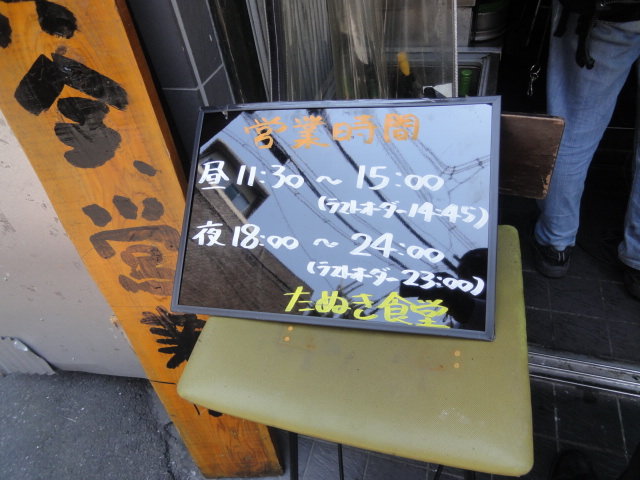 営業時間
昼 11:30 ~ 15:00
(ラストオーダー 14:45)
夜 18:00 ~ 24:00
(ラストオーダー 23:00)
たぬき食堂
食堂